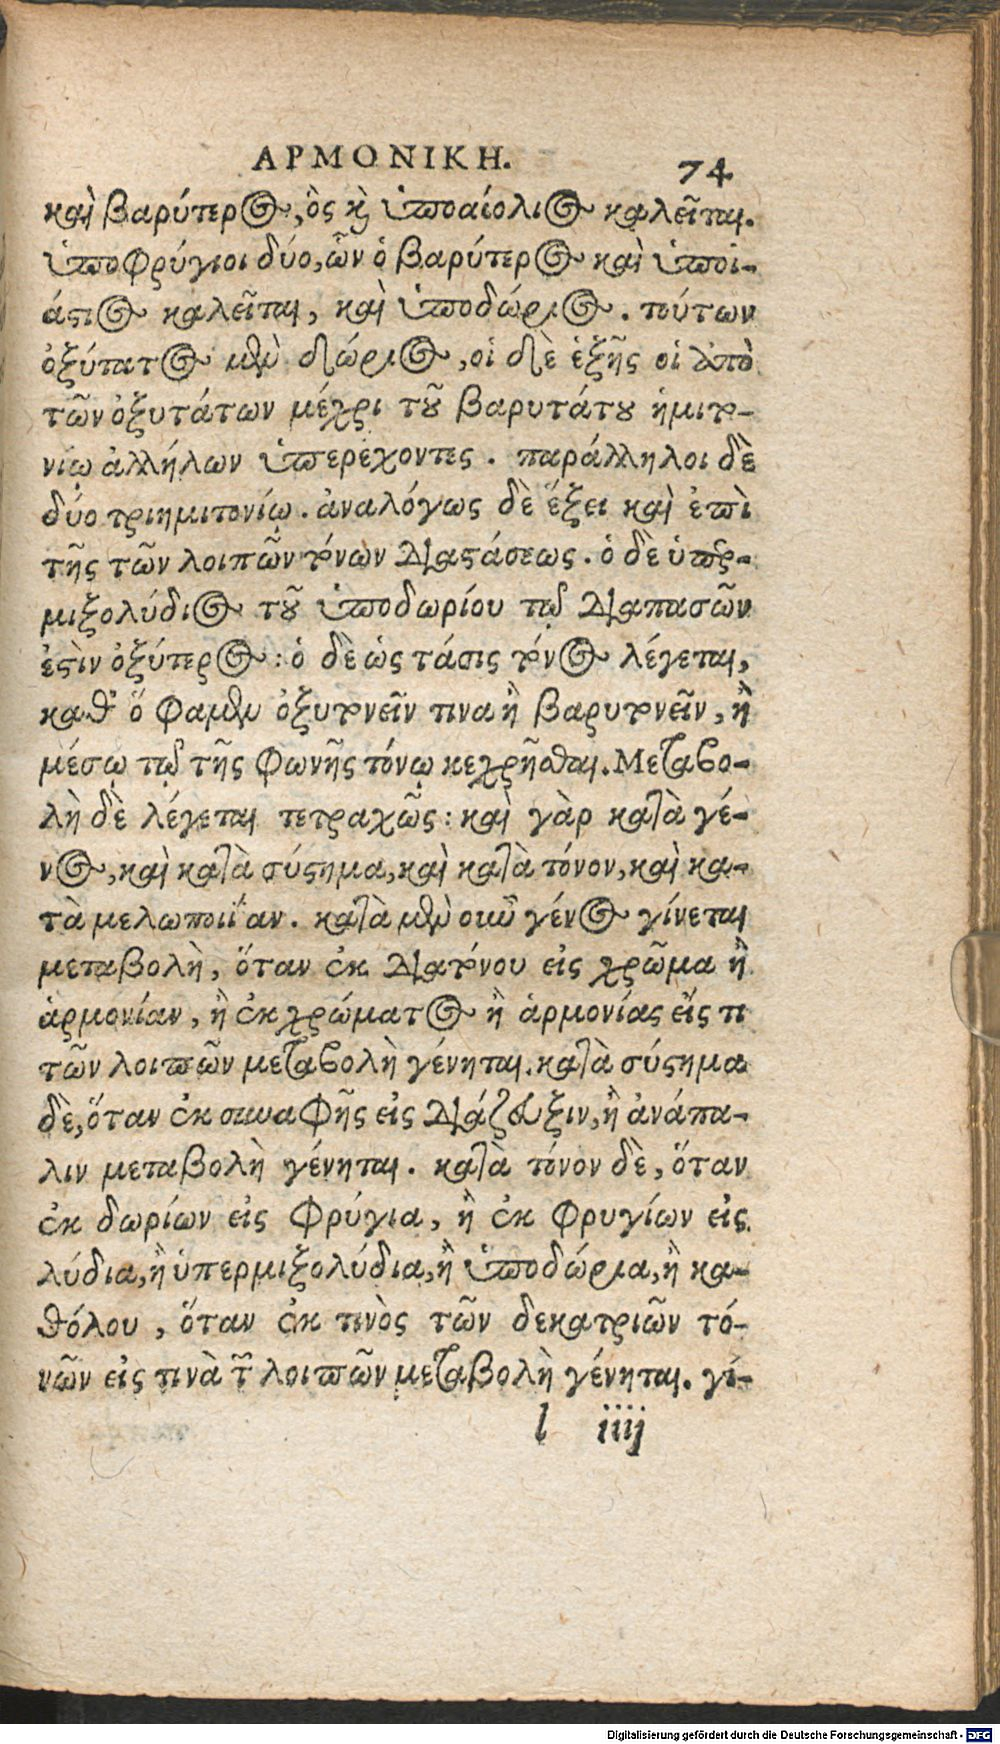 ΑΡΜΟΝΙΚΗ. 74
καὶ βαρύτερος, ὃς καὶ ὑποαίολιος καλεῖται.
ὑποφρύγιοι δύο, ὧν ὁ βαρύτερος καὶ ὑποϊ-
άστιος καλεῖται, καὶ ὑποδώριος. τούτων
ὀξύτατος μὲν δώριος, οἱ δὲ ἑξῆς οἱ ἀπὸ
τῶν ὀξυτάτων μέχρι τοῦ βαρυτάτου ἡμιτο-
νίῳ ἀλλήλων ὑπερέχοντες. παράλληλοι δὲ
δύο τριημιτονίῳ. ἀναλόγως δὲ ἕξει καὶ ἐπὶ
τῆς τῶν λοιπῶν τόνων διαστάσεως. ὁ δὲ ὑπερ-
μιξολύδιος τοῦ ὑποδωρίου τῷ διαπασῶν
ἐστὶν ὀξύτερος: ὁ δὲ ὡς τάσις τόνος λέγεται,
καθ' ὅ φαμὲν ὀξυτονεῖν τινα ἢ βαρυτονεῖν, ἢ
μέσῳ τῷ τῆς φωνῆς τόνῳ κεχρῆσθαι. Μεταβο-
λὴ δὲ λέγεται τετραχῶς: καὶ γὰρ κατὰ γέ-
νος, καὶ κατὰ σύστημα, καὶ κατὰ τόνον, καὶ κα-
τὰ μελωποιΐαν. κατὰ μὲν οὖν γένος γίνεται
μεταβολὴ, ὅταν ἐκ διατόνου εἰς χρῶμα ἢ
ἁρμονίαν, ἢ ἐκ χρώματος ἢ ἁρμονίας εἴς τι
τῶν λοιπῶν μεταβολὴ γένηται. κατὰ σύστημα
δὲ, ὅταν ἐκ συναφῆς εἰς διάζευξιν, ἢ ἀνάπα-
λιν μεταβολὴ γένηται. κατὰ τόνον δὲ, ὅταν
ἐκ δωρίων εἰς φρύγια, ἢ ἐκ φρυγίων εἰς
λύδια, ἢ ὑπερμιξολύδια, ἢ ὑποδώρια, ἢ κα-
θόλου, ὅταν ἐκ τινὸς τῶν δεκατριῶν τό-
νῶν εἰς τινὰ τῶν λοιπῶν μεταβολὴ γένηται. γί-
l iiij
Digitalisierung gefördert durch die Deutsche Forschungsgemeinschaft - DFG